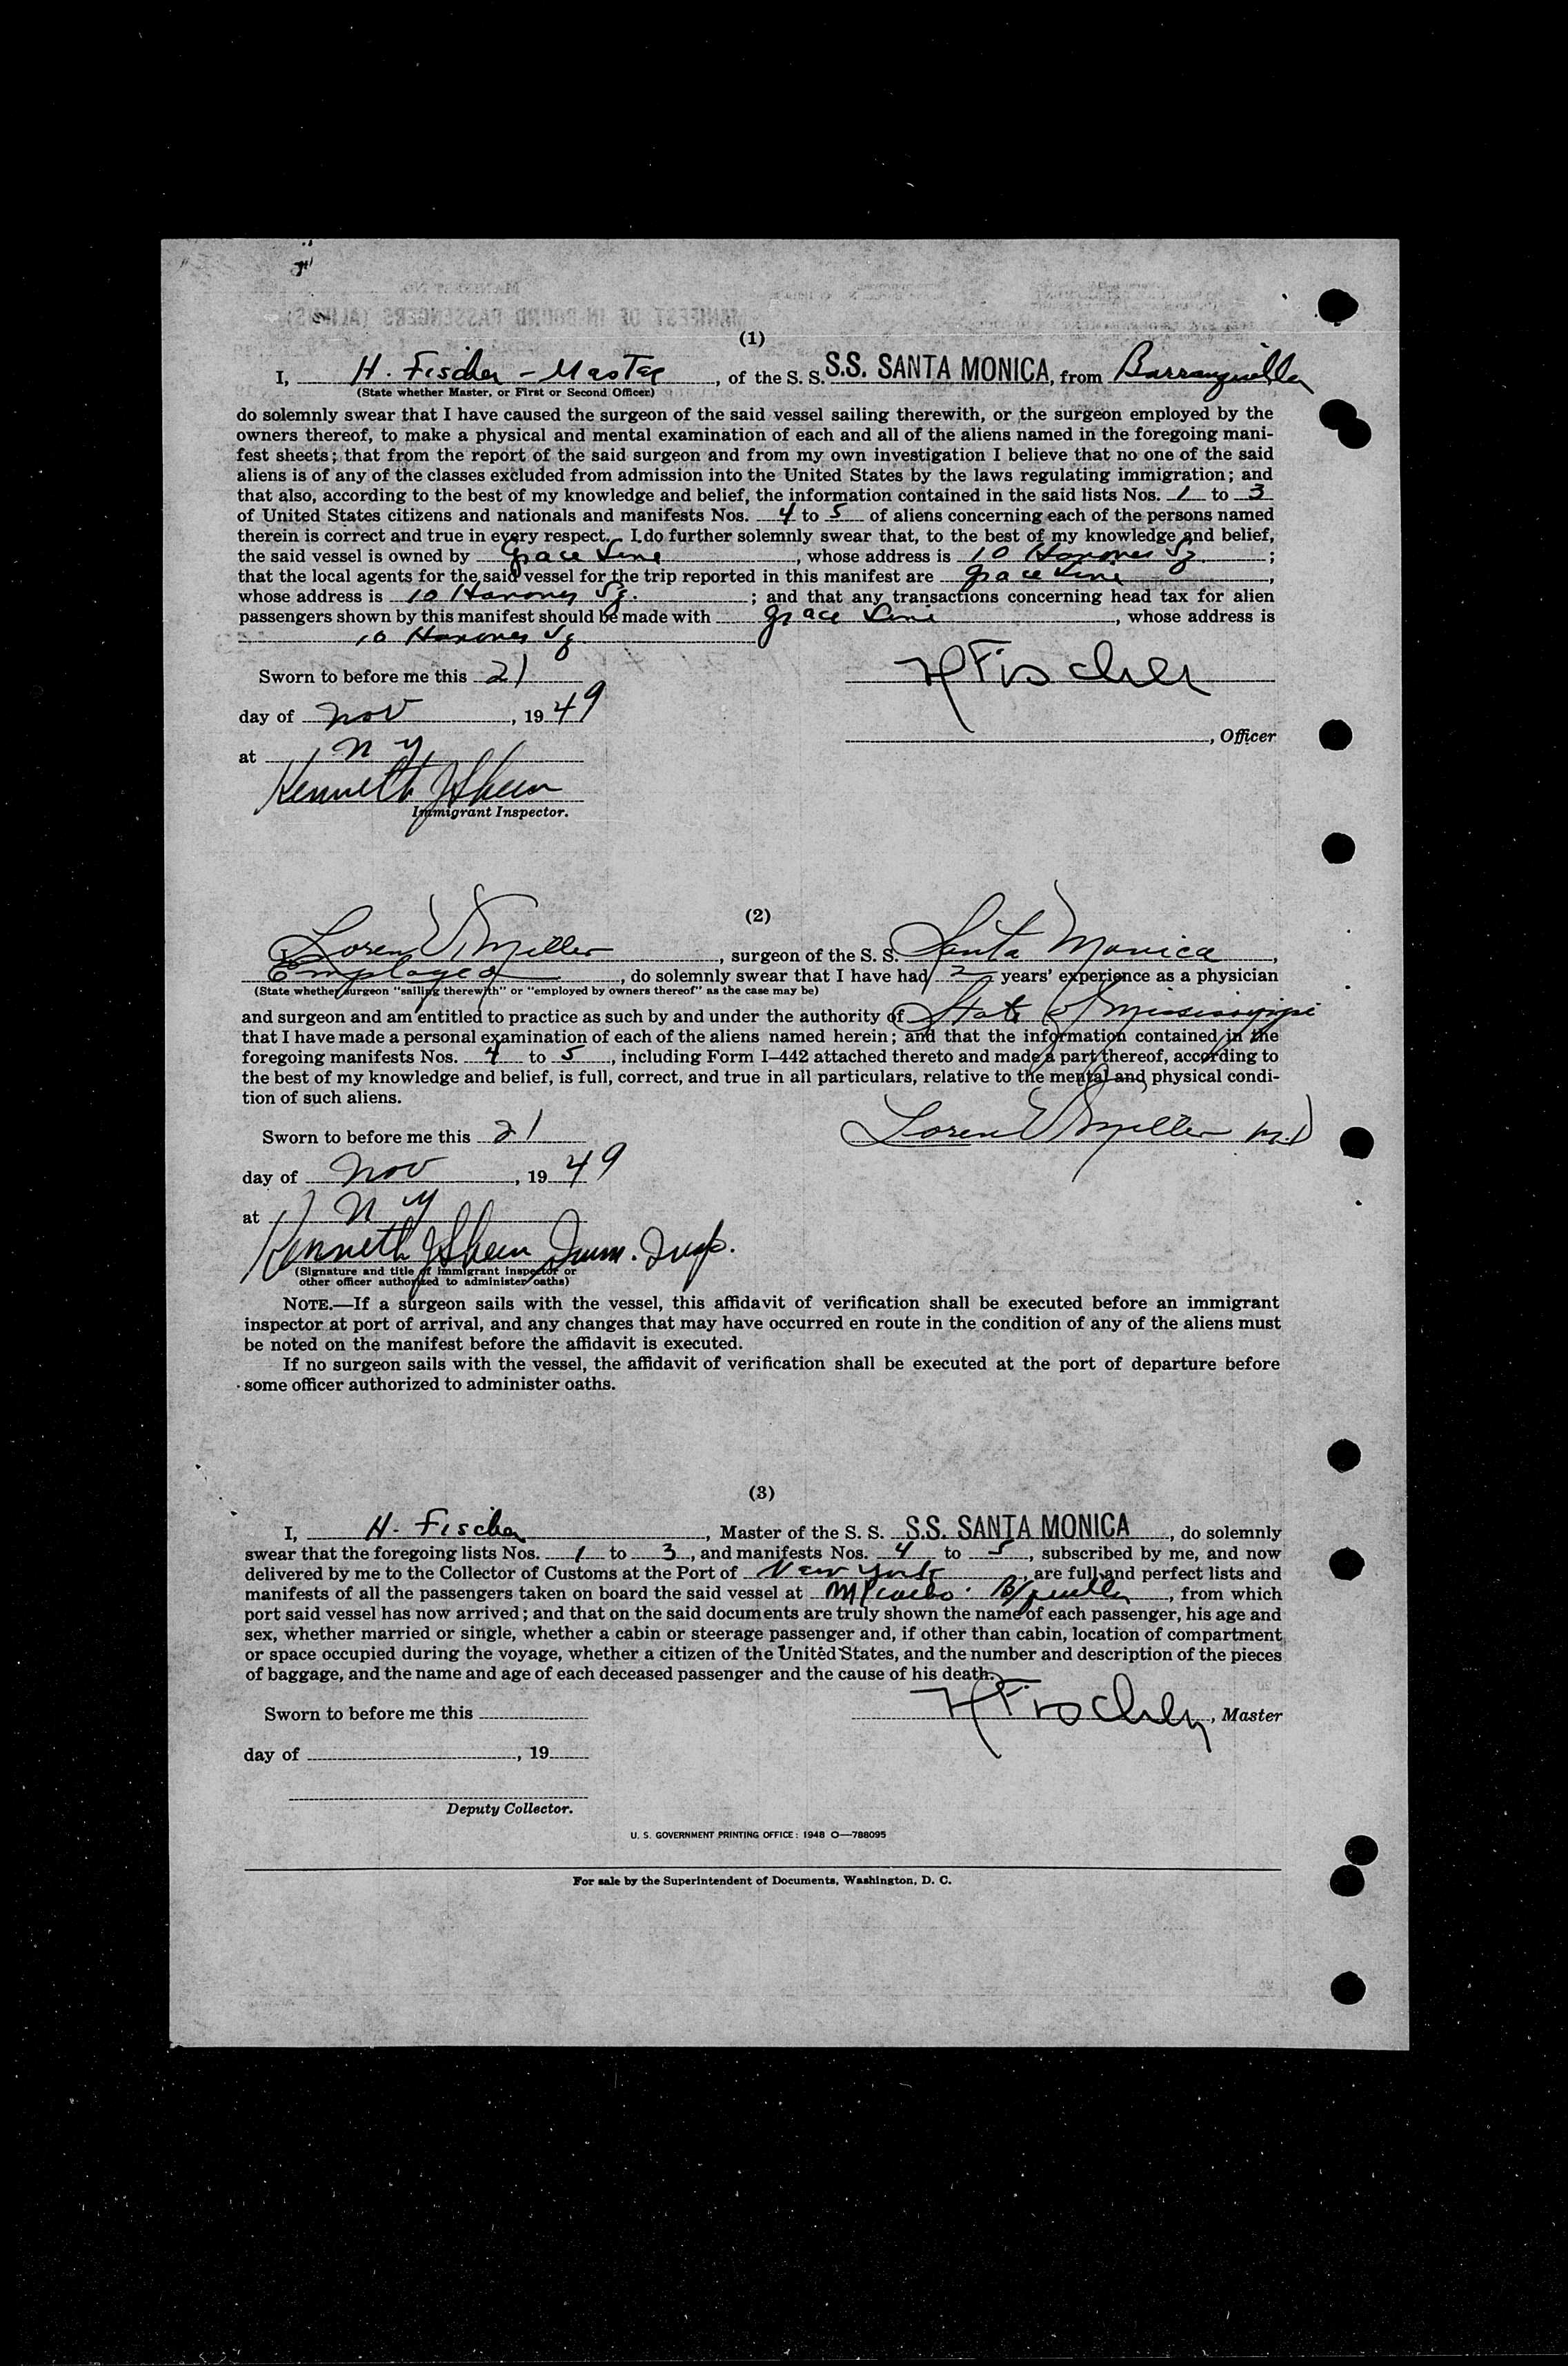 (1)
I, H. Fischer - Master, of the S. S. S.S. SANTA MONICA, from Barranquilla
(State whether Master, or First or Second Officer)
do solemnly swear that I have caused the surgeon of the said vessel sailing therewith, or the surgeon employed by the
owners thereof, to make a physical and mental examination of each and all of the aliens named in the foregoing mani-
fest sheets; that from the report of the said surgeon and from my own investigation I believe that no one of the said
aliens is of any of the classes excluded from admission into the United States by the laws regulating immigration; and
that also, according to the best of my knowledge and belief, the information contained in the said lists Nos. 1 to 3
of United States citizens and nationals and manifests Nos. 4 to 5 of aliens concerning each of the persons named
therein is correct and true in every respect. I do further solemnly swear that, to the best of my knowledge and belief,
the said vessel is owned by Grace Line, whose address is 10 Hanover Sq.;
that the local agents for the said vessel for the trip reported in this manifest are Grace Line,
whose address is 10 Hanover Sq.; and that any transactions concerning head tax for alien
passengers shown by this manifest should be made with Grace Line, whose address is
10 Hanover Sq
Sworn to before me this 21
H Fischer
day of Nov, 1949
, Officer
at N Y
Kenneth J Sheen
Immigrant Inspector.
(2)
I, Loren E Miller, surgeon of the S. S. Santa Monica,
Employed, do solemnly swear that I have had 2 years' experience as a physician
(State whether surgeon "sailing therewith" or "employed by owners thereof" as the case may be)
and surgeon and am entitled to practice as such by and under the authority of State of Mississippi
that I have made a personal examination of each of the aliens named herein; and that the information contained in the
foregoing manifests Nos. 4 to 5, including Form I-442 attached thereto and made a part thereof, according to
the best of my knowledge and belief, is full, correct, and true in all particulars, relative to the mental and physical condi-
tion of such aliens.
Sworn to before me this 21
Loren E Miller M.D
day of Nov, 1949
at N Y
Kenneth J Sheen Imm. Insp.
(Signature and title of immigrant inspector or
other officer authorized to administer oaths)
NOTE.—If a surgeon sails with the vessel, this affidavit of verification shall be executed before an immigrant
inspector at port of arrival, and any changes that may have occurred en route in the condition of any of the aliens must
be noted on the manifest before the affidavit is executed.
If no surgeon sails with the vessel, the affidavit of verification shall be executed at the port of departure before
some officer authorized to administer oaths.
(3)
I, H. Fischer, Master of the S. S. S.S. SANTA MONICA, do solemnly
swear that the foregoing lists Nos. 1 to 3, and manifests Nos. 4 to 5, subscribed by me, and now
delivered by me to the Collector of Customs at the Port of New York, are full and perfect lists and
manifests of all the passengers taken on board the said vessel at B/quilla, from which
port said vessel has now arrived; and that on the said documents are truly shown the name of each passenger, his age and
sex, whether married or single, whether a cabin or steerage passenger and, if other than cabin, location of compartment
or space occupied during the voyage, whether a citizen of the United States, and the number and description of the pieces
of baggage, and the name and age of each deceased passenger and the cause of his death.
Sworn to before me this
H Fischer, Master
day of , 19
Deputy Collector.
U. S. GOVERNMENT PRINTING OFFICE: 1948 O—788095
For sale by the Superintendent of Documents, Washington, D. C.